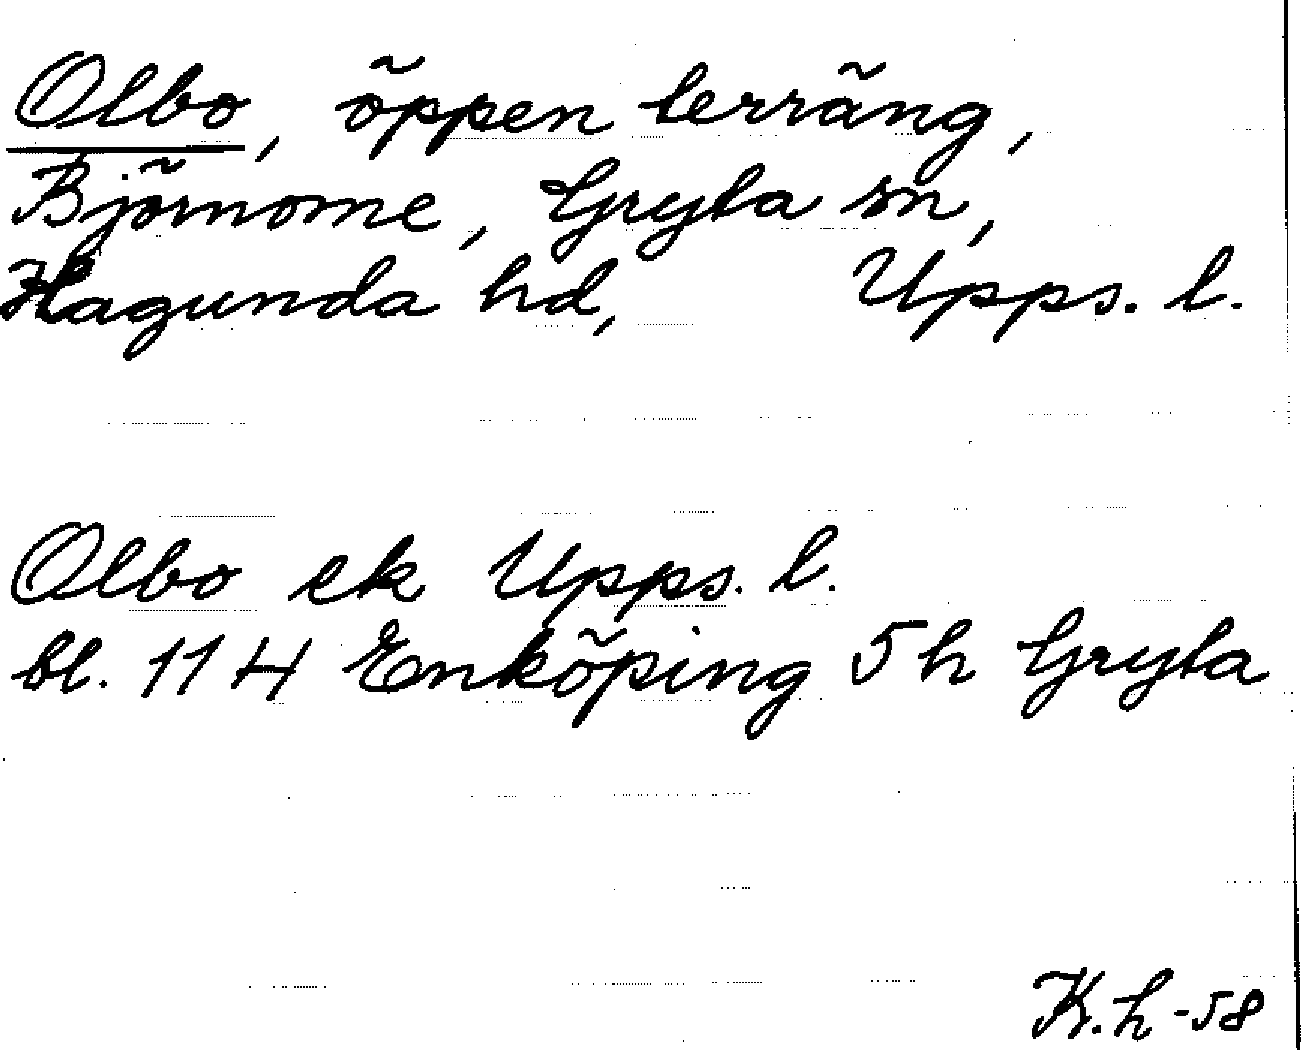 Olbo, öppen terräng,
Björnome, Gryta sn,
Hagunda hd, Upps. l.
Olbo ek Upps. l.
bl. 11 H Enköping 5 h Gryta
K.h -58